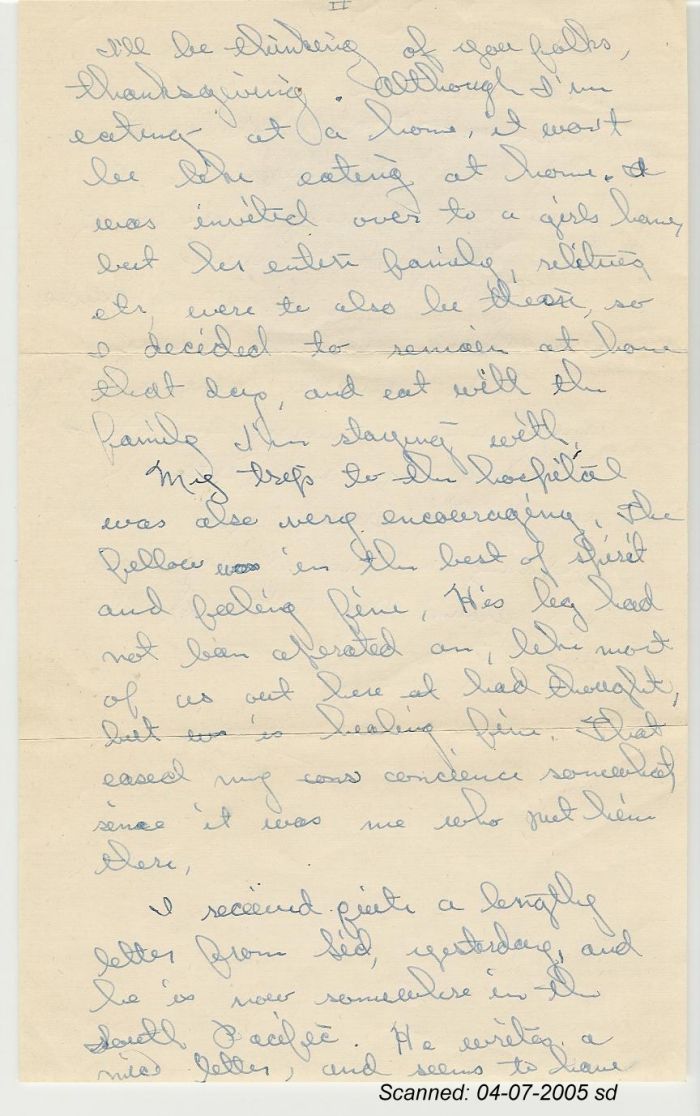 II
I'll be thinking of you folks,
thanksgiving. Although I'm
eating at a home, it won't
be like eating at home. I
was invited over to a girls home,
but her entire family, relitives
etc, were to also be there, so
I decided to remain at home
that day, and eat with the
family I'm staying with.
My trip to the hospital
was also very encouraging. The
fellow was in the best of spirit
and feeling fine, His leg had
not been operated on, like most
of us out here at had thought,
but is healing fine. That
eased my cons concience somewhat,
since it was me who put him
there,
I received quite a lengthy
letter from Sid, yesterday, and
he is now somewhere in the
South Pacific. He writes a
nice letter, and seems to have
Scanned: 04-07-2005 sd